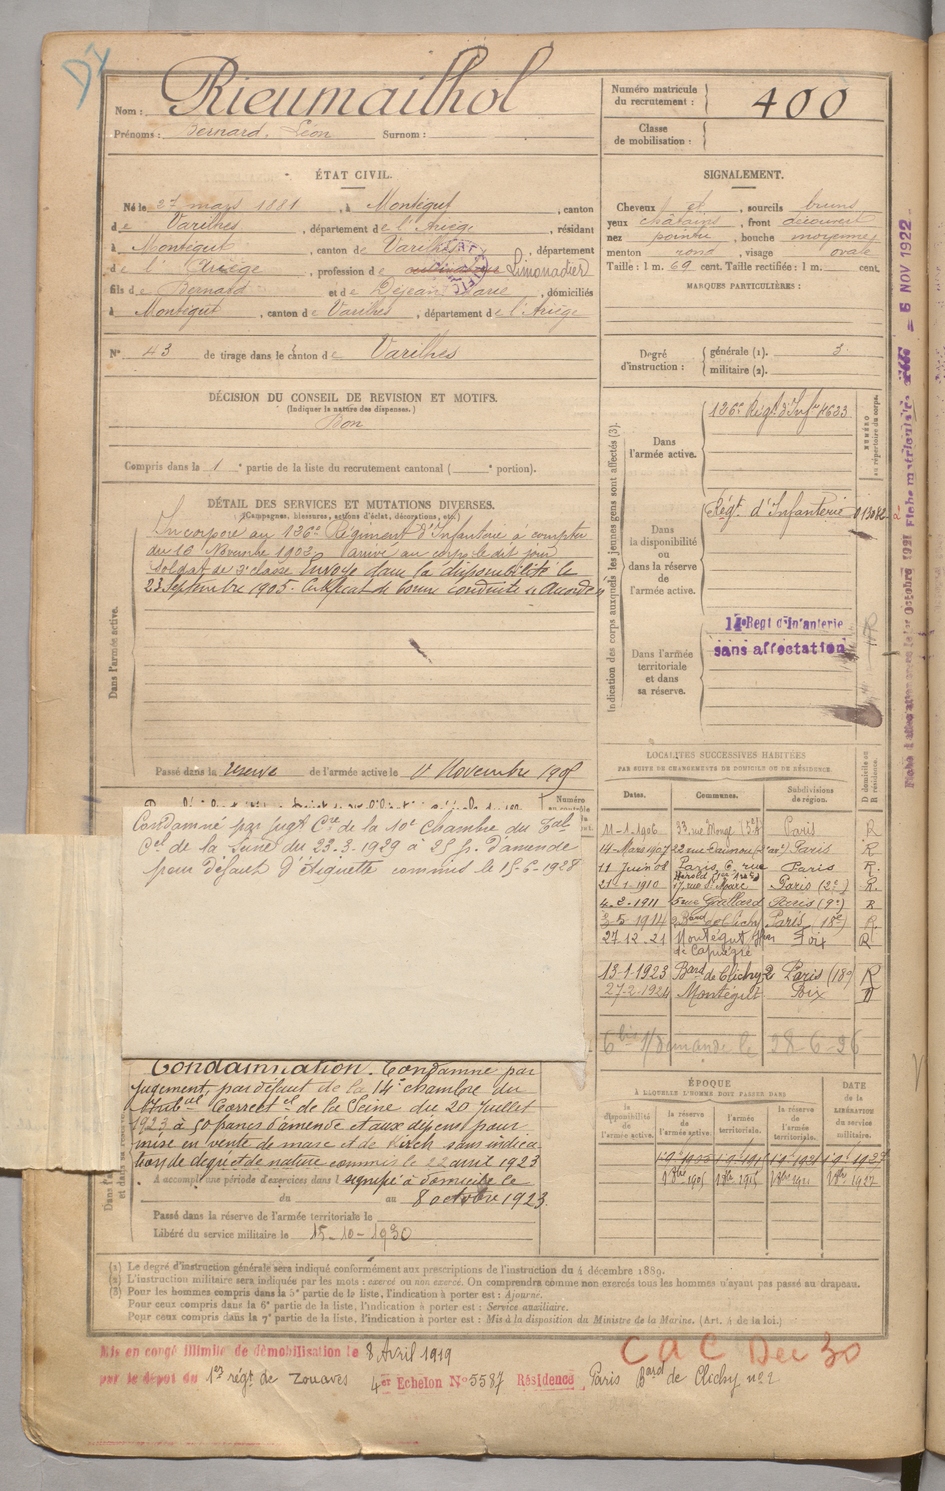 DI
Nom : Rieumailhol
Prénoms : Bernard, Léon Surnom :
Numéro matricule du recrutement : 400
Classe de mobilisation :
ÉTAT CIVIL.
Né le 27 mars 1881, à Montégut, canton
de Varilhes, département de l'Ariège, résidant
à Montégut, canton de Varilhes, département
de l'Ariège, profession de Limonadier
fils de Bernard et de Déjean Marie, domiciliés
à Montégut, canton de Varilhes, département de l'Ariège
N° 43 de tirage dans le canton de Varilhes
SIGNALEMENT.
Cheveux et, sourcils bruns
yeux chatains, front découvert
nez pointu, bouche moyenne
menton rond, visage ovale
Taille : 1 m. 69 cent. Taille rectifiée : 1 m. cent.
MARQUES PARTICULIÈRES :
Degré d'instruction : générale (1). 3
militaire (2).
DÉCISION DU CONSEIL DE REVISION ET MOTIFS.
(Indiquer la nature des dispenses.)
Bon
Compris dans la 1e partie de la liste du recrutement cantonal ( e portion).
DÉTAIL DES SERVICES ET MUTATIONS DIVERSES.
(Campagnes, blessures, actions d'éclat, décorations, etc.)
Dans l'armée active.
Incorporé au 126e Régiment d'Infanterie à compter
du 16 Novembre 1902, arrivé au corps le dit jour
soldat de 2e classe Envoyé dans la disponibilité le
23 Septembre 1905. Certificat de bonne conduite accordé
Passé dans la réserve de l'armée active le 1r Novembre 1905
Indication des corps auxquels les jeunes gens sont affectés (3).
NUMÉRO au répertoire du corps.
Dans l'armée active.
126e Régt d'Infie 4633
Dans la disponibilité ou dans la réserve de l'armée active.
Régt d'Infanterie
Dans l'armée territoriale et dans sa réserve.
14e Regt d'Infanterie
sans affectation
5 NOV 1922
LOCALITÉS SUCCESSIVES HABITÉES
PAR SUITE DE CHANGEMENTS DE DOMICILE OU DE RÉSIDENCE.
D domicile ou R résidence.
Dates. Communes. Subdivisions de région.
11-1-1906 33, rue Monge (5e) Paris R
14-Mars 1907 22 rue Daunou (2e arr) Paris R
11 Juin 08 Paris, 6, rue Hérold Paris R.
21-1-1910 17, rue St Marc Paris (2e) R.
4-2-1911 5 rue Gaillard Paris (9e) R
3-5-1914 2 Bard de Clichy Paris (18e) R
27-12-21 Montégut Foix R
13-1-1923 Bard de Clichy 2 Paris (18e) R
27-2-1924 Montégut Foix
demande le 28-6-26
Condamné par jugt Cel de la 10e Chambre du Tal
Cel de la Seine du 23-3-1929 à 25 f. d'amende
pour défaut d'étiquette commis le 15-6-1928
Condamnation. Condamné par
jugement par défaut de la 14e chambre du
Tribal Correctel de la Seine du 20 Juillet
1923 à 50 francs d'amende et aux dépens pour
mise en vente de marc et de Kirch sans indica
tion de degré et de nature commis le 22 avril 1923
signifié à domicile le
8 octobre 1923.
A accompli une période d'exercices dans l
du au
Passé dans la réserve de l'armée territoriale le
Libéré du service militaire le 15-10-1930
ÉPOQUE
À LAQUELLE L'HOMME DOIT PASSER DANS
la disponibilité de l'armée active.
la réserve de l'armée active.
l'armée territoriale.
la réserve de l'armée territoriale.
DATE de la LIBÉRATION du service militaire.
(1) Le degré d'instruction générale sera indiqué conformément aux prescriptions de l'instruction du 4 décembre 1889.
(2) L'instruction militaire sera indiquée par les mots : exercé ou non exercé. On comprendra comme non exercés tous les hommes n'ayant pas passé au drapeau.
(3) Pour les hommes compris dans la 5e partie de la liste, l'indication à porter est : Ajourné.
Pour ceux compris dans la 6e partie de la liste, l'indication à porter est : Service auxiliaire.
Pour ceux compris dans la 7e partie de la liste, l'indication à porter est : Mis à la disposition du Ministre de la Marine. (Art. 4 de la loi.)
Mis en congé illimité de démobilisation le 8 Avril 1919
par le dépôt du 1er régt de Zouaves 4er Echelon N° 5587 Résidence Paris Bard de Clichy n° 2
CAC Dec 30